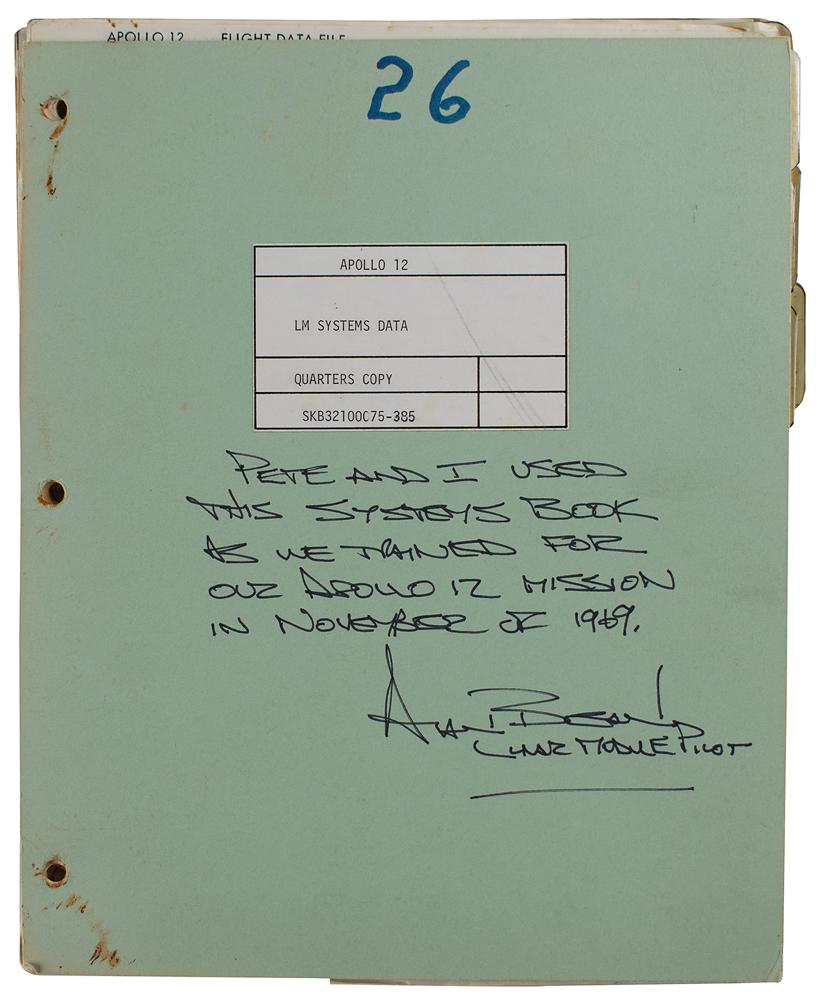 APOLLO 12 FLIGHT DATA FILE
26
APOLLO 12
LM SYSTEMS DATA
QUARTERS COPY
SKB32100C75-385
PETE AND I USED
THIS SYSTEMS BOOK
AS WE TRAINED FOR
OUR APOLLO 12 MISSION
IN NOVEMBER OF 1969.
ALAN BEAN
LUNAR MODULE PILOT